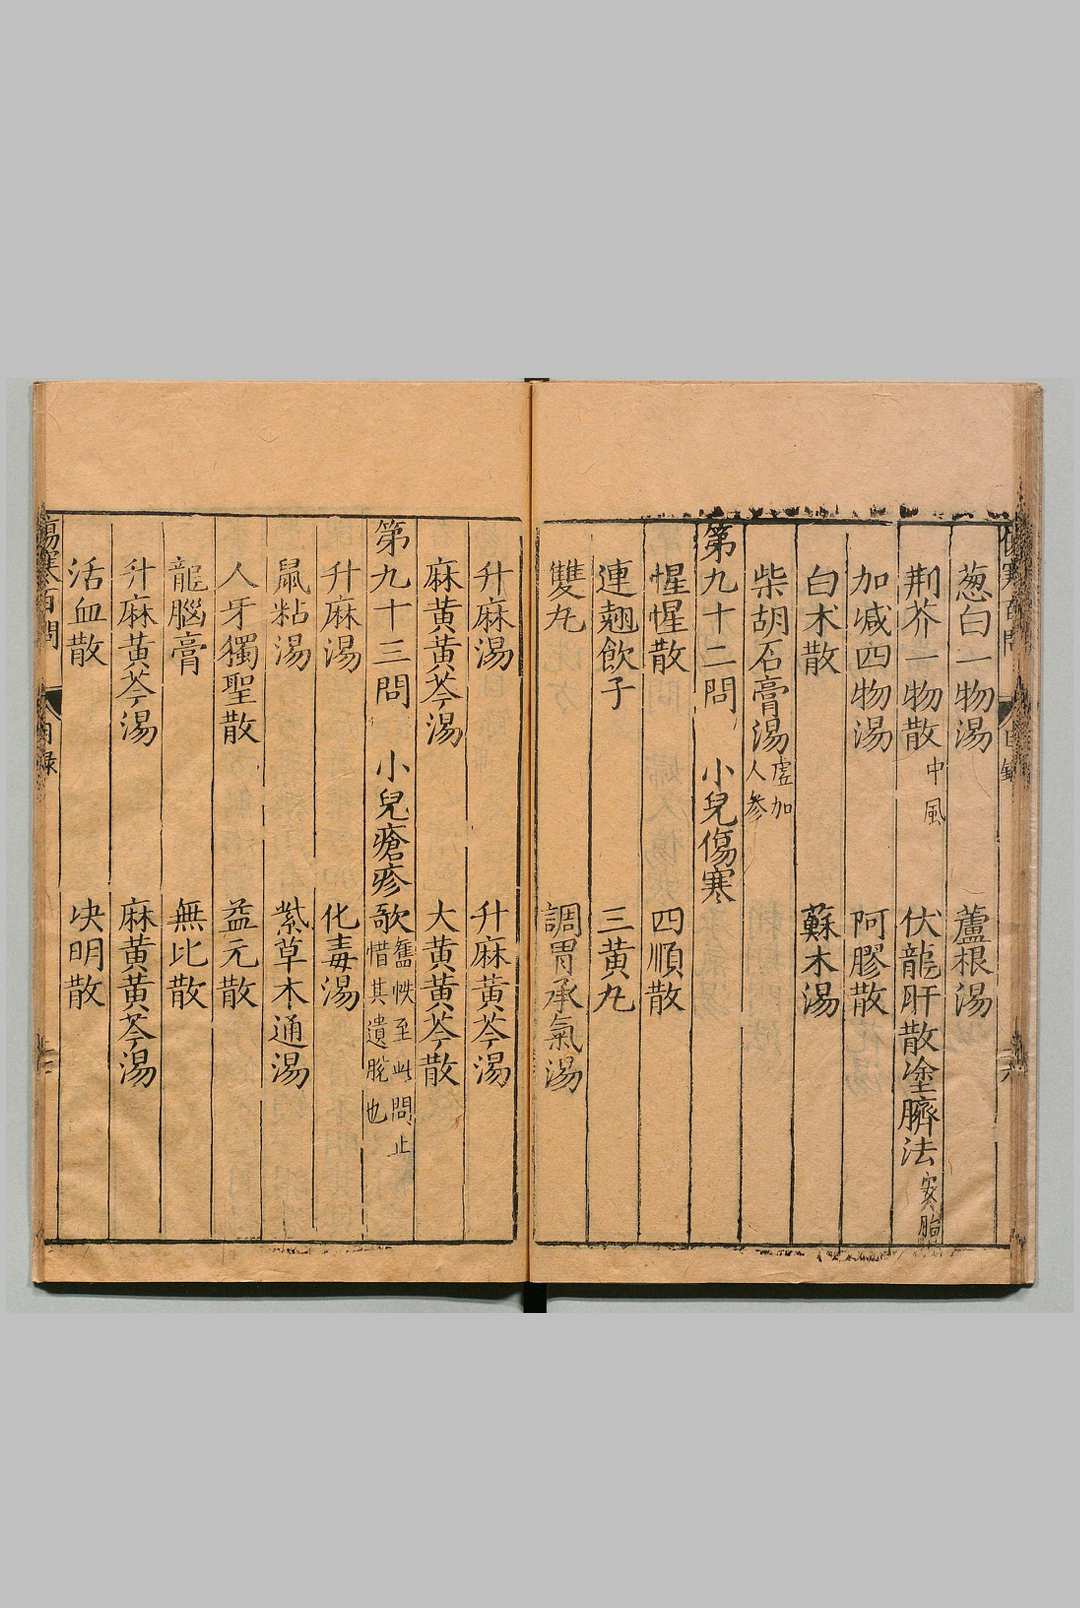 葱白一物湯　蘆根湯
荆芥一物散 中風　伏龍肝散塗臍法 安胎
加减四物湯　阿膠散
白术散　蘇木湯
柴胡石膏湯 虛加人參
第九十二問　小兒傷寒
惺惺散　四順散
連翹飲子　三黄丸
雙丸　調胃承氣湯
升麻湯　升麻黄芩湯
麻黄黄芩湯　大黄黄芩散
第九十三問　小兒瘡疹 歌舊帙至此問止惜其遺脫也
升麻湯　化毒湯
鼠粘湯　紫草木通湯
人牙獨聖散　益元散
龍腦膏　無比散
升麻黄芩湯　麻黄黄芩湯
活血散　决明散
傷寒百問　目録